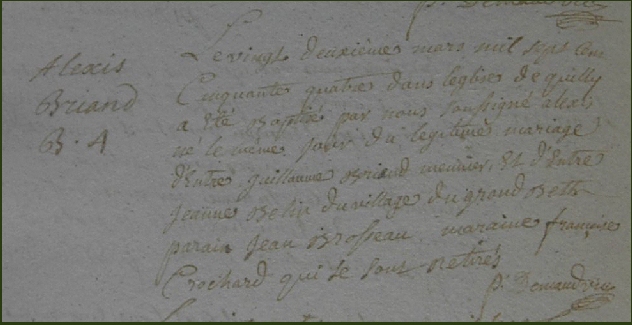 Alexis
Briand
B. 4
Le vingt deuxieme mars mil sept cent
Cinquante quatre dans leglise de quilly
a été Baptisé par nous soussigné alexis
né le meme jour du legitime mariage
d'Entre guillaume Briand meunier, Et d'Entre
jeanne Belin du village du grand Beth
parain jean Brosseau maraine françoise
Crochard qui se sont Retirés